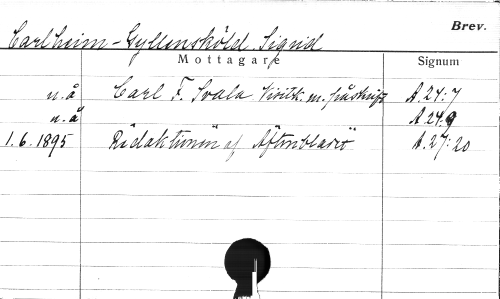 Brev.
Carlheim-Gyllensköld, Sigrid
Mottagare Signum
u.å Carl F. Svala Visitk. m. påskrift A.24:7
u.å A.24:9
1.6.1895 Redaktionen af Aftonbladet A.27:20